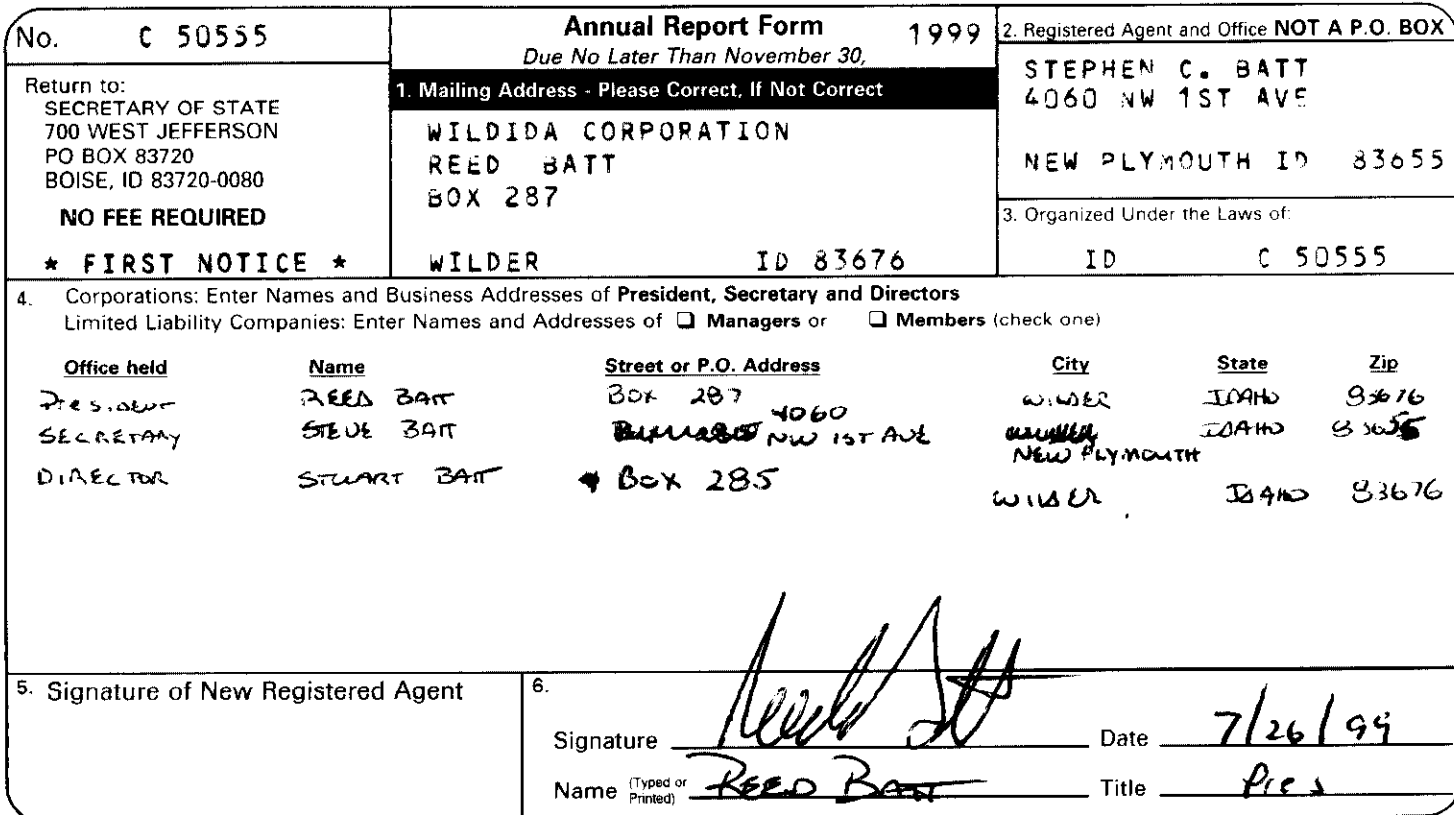 No. C 50555
Return to:
SECRETARY OF STATE
700 WEST JEFFERSON
PO BOX 83720
BOISE, ID 83720-0080
NO FEE REQUIRED
* FIRST NOTICE *
Annual Report Form 1999
Due No Later Than November 30,
1. Mailing Address - Please Correct, If Not Correct
WILDIDA CORPORATION
REED BATT
BOX 287
WILDER ID 83676
2. Registered Agent and Office NOT A P.O. BOX
STEPHEN C. BATT
4060 NW 1ST AVE
NEW PLYMOUTH ID 83655
3. Organized Under the Laws of:
ID C 50555
4. Corporations: Enter Names and Business Addresses of President, Secretary and Directors
Limited Liability Companies: Enter Names and Addresses of ❑ Managers or ❑ Members (check one)
Office held Name Street or P.O. Address City State Zip
President REED BATT Box 287 WILDER IDAHO 83676
SECRETARY STEVE BATT 4060 NW 1ST AVE NEW PLYMOUTH IDAHO 83655
DIRECTOR STUART BATT Box 285 WILDER IDAHO 83676
5. Signature of New Registered Agent
6.
Signature Reed Batt Date 7/26/99
Name (Typed or Printed) REED BATT Title Pres